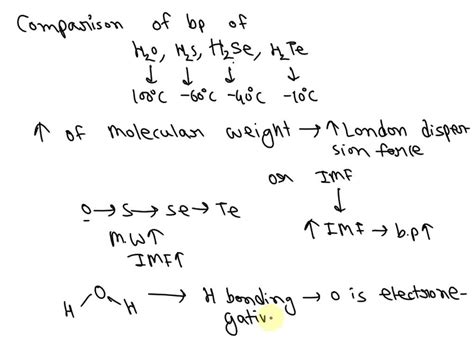 Comparison of bp of
H₂O, H₂S, H₂Se, H₂Te
↓ ↓ ↓ ↓
100°C -60°C -40°C -10°C
↑ of molecular weight → ↑ London disper
sion force
or IMF
↓
O → S → Se → Te
↑ IMF → b.p ↑
MW ↑
IMF ↑
H O H → H bonding → O is electrone-
gativ.